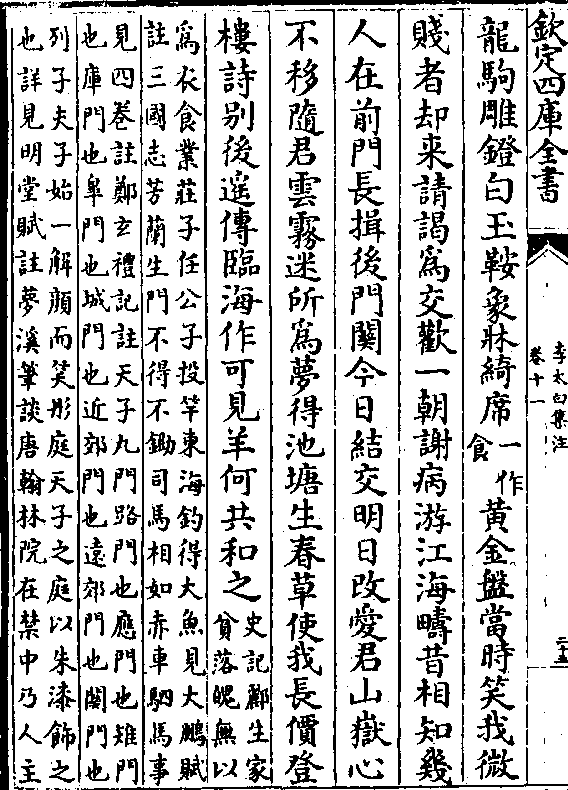 欽定四庫全書
李太白集注
卷十一
二十五
龍駒雕鐙白玉鞍象牀綺席一作食黃金盤當時笑我微
賤者却来請謁為交歡一朝謝病游江海疇昔相知幾
人在前門長揖後門闗今日結交明日改愛君山嶽心
不移隨君雲霧迷所為夢得池塘生春草使我長價登
樓詩别後遥傳臨海作可見羊何共和之史記酈生家
貧落魄無以
為衣食業莊子任公子投竿東海釣得大魚見大鵬賦
註三國志芳蘭生門不得不鋤司馬相如赤車駟馬事
見四卷註鄭玄禮記註天子九門路門也應門也雉門
也庫門也臯門也城門也近郊門也遠郊門也闗門也
列子夫子始一解顔而笑彤庭天子之庭以朱漆飾之
也詳見明堂賦註夢溪筆談唐翰林院在禁中乃人主